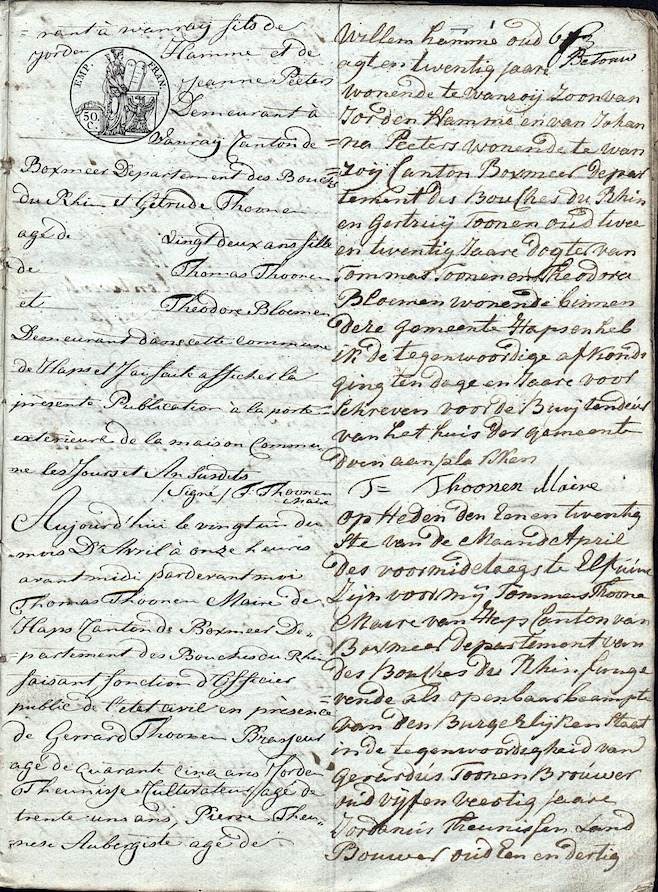 = rant à wanray fils de
Jorden Hamme et de
Jeanne Peeters
EMP. FRAN.
50 C.
Demeurant à
Wanray Canton de
Boxmeer Departement des Bouches
du Rhin et Getrude Thoonen
agé de Vingt deux ans fille
de Thomas Thoonen
et Theodore Bloemen
Demeurant dans cette commune
de Haps et J'ai fait afficher la
présente Publication à la porte =
exterieure de la maison Commu-
ne les Jours et An Susdits
/Signé/ T. Thoonen
Maire
Aujourd'hui le vingt un du
mois D'Avril à onze heures
avant midi par devant moi
Thomas Thoonen Maire de
Haps Canton de Boxmeer De„
= partement des Bouches du Rhin
faisant fonction d'Officier
public de l'état civil en présence
de Gerrard Thoonen Brasseur
age de quarante cinq ans Jorden
Theunisse Cultivateur age de
trente uns ans, Pierre Theu„
nese Aubergiste age de
Willem hamme oud
agt en twentig jaare
wonende te Wanroij Zoon van
Jorden Hamme en van Johan
= na Peeters wonende te wan
= roij Canton Boxmeer Depar
tement des Bouches du Rhin
en Gertruij Toonen oud twee
en twentig Jaare dogter van
Tommas Toonen en Theodora
Bloemen wonende binnen
deze gemeente Haps en heb
ik de tegenwoordige afkonde
ging ten dage en Jaare voor
schreven voor de Buijtendeur
van het huis der gemeente
doen aanplakken
T= Thoonen Maire
op Heden den Een en twentig
ste van de Maand April
des voormiddaags te Elf uure
Zijn voor mij Tommas Thoone
Maire van Haps Canton van
Boxmeer departement van
des Bouches du Rhin funge
rende als openbaar beampte
van den Burgerlijken Staat
in de tegenwoordigheid van
Gerardus Toonen Brouwer
oud vijf en veertig jaare
Jordanus Theunissen Land
Bouwer oud Een en dertig